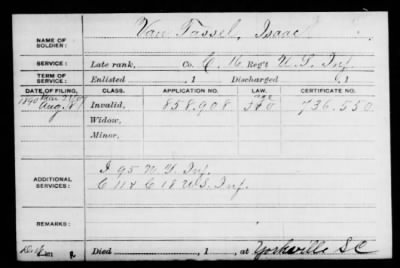 NAME OF SOLDIER: Van Tassel, Isaac
SERVICE: Late rank, Co. C, 16 Reg't U.S. Inf.
TERM OF SERVICE: Enlisted , 1 Discharged , 1
DATE OF FILING. CLASS. APPLICATION NO. LAW. CERTIFICATE NO.
1890 Aug. Invalid, 858.908 736.550
Widow,
Minor,
ADDITIONAL SERVICES: I 95 N.Y. Inf.
C 11 & C 18 U.S. Inf.
REMARKS:
Died , 1 , at Yorkville S.C.